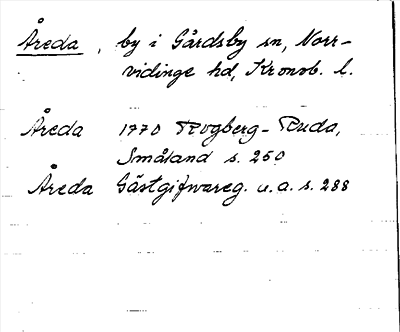 Åreda, by i Gårdsby sn, Norr-
vidinge hd, Kronob. l.
Åreda 1770 Rogberg-Ruda,
Småland s. 250
Åreda Gästgifwareg. u.a. s. 288